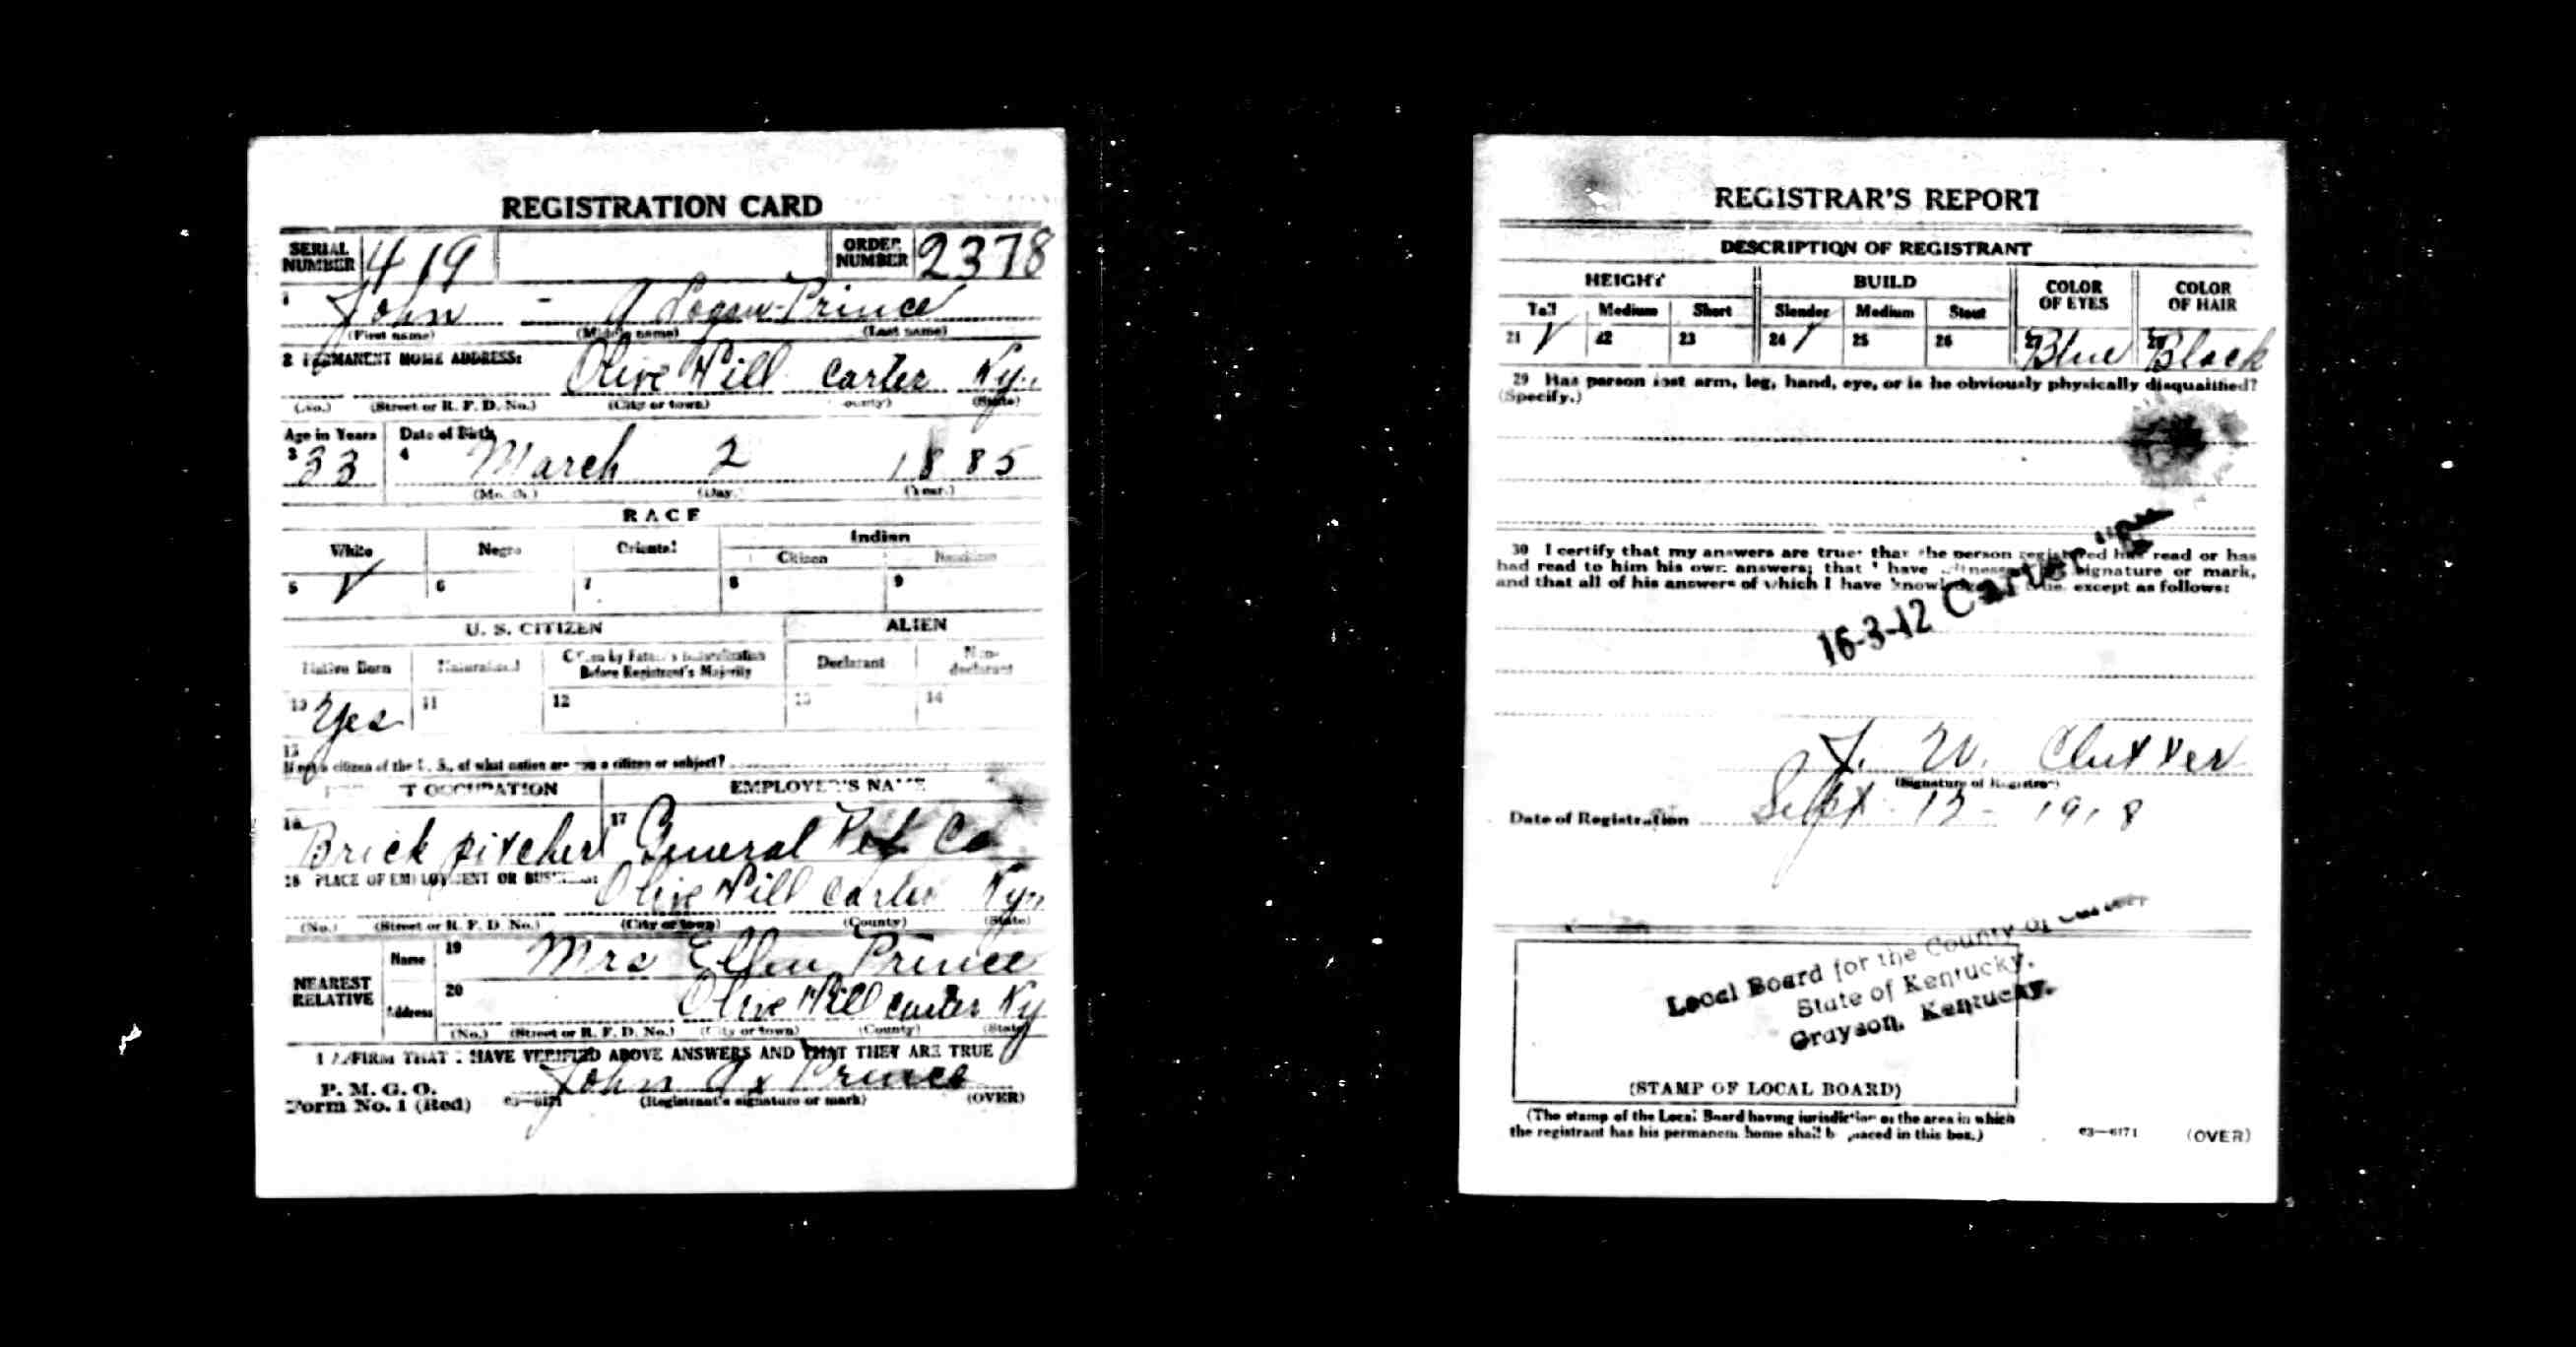 REGISTRATION CARD
SERIAL NUMBER 419 ORDER NUMBER 2378
1 John - A Logan Prince
(First name) (Middle name) (Last name)
2 PERMANENT HOME ADDRESS: Olive Hill Carter Ky.
(No.) (Street or R. F. D. No.) (City or town) (County) (State)
Age in Years Date of Birth
3 33 4 March 2 1885
(Month.) (Day.) (Year.)
RACE
White Negro Oriental Indian
Citizen Noncitizen
5 ✓ 6 7 8 9
U. S. CITIZEN ALIEN
Native Born Naturalized Citizen by Father's Naturalization Before Registrant's Majority Declarant Non-declarant
10 Yes 11 12 13 14
15 If not a citizen of the U. S., of what nation are you a citizen or subject?
T OCCUPATION EMPLOYER'S NAME
16 Brick pitcher 17 General Ref Co
18 PLACE OF EMPLOYMENT OR BUSINESS: Olive Hill Carter Ky.
(No.) (Street or R. F. D. No.) (City or town) (County) (State)
NEAREST RELATIVE Name 19 Mrs Ellen Prince
Address 20 Olive Hill Carter Ky
(No.) (Street or R. F. D. No.) (City or town) (County) (State)
I AFFIRM THAT I HAVE VERIFIED ABOVE ANSWERS AND THAT THEY ARE TRUE
P. M. G. O.
Form No. 1 (Red) 03—6171 John A x Prince
(Registrant's signature or mark) (OVER)
REGISTRAR'S REPORT
DESCRIPTION OF REGISTRANT
HEIGHT BUILD COLOR OF EYES COLOR OF HAIR
Tall Medium Short Slender Medium Stout
21 ✓ 22 23 24 ✓ 25 26 27 Blue 28 Black
29 Has person lost arm, leg, hand, eye, or is he obviously physically disqualified?
(Specify.)
30 I certify that my answers are true; that the person registered has read or has
had read to him his own answers; that I have witnessed his signature or mark,
and that all of his answers of which I have knowledge are true, except as follows:
16-3-12 Carter
(Signature of Registrar)
Date of Registration Sept 12 - 1918
Local Board for the County of Carter,
State of Kentucky,
Grayson, Kentucky.
(STAMP OF LOCAL BOARD)
(The stamp of the Local Board having jurisdiction of the area in which
the registrant has his permanent home shall be placed in this box.)
03—6171 (OVER)